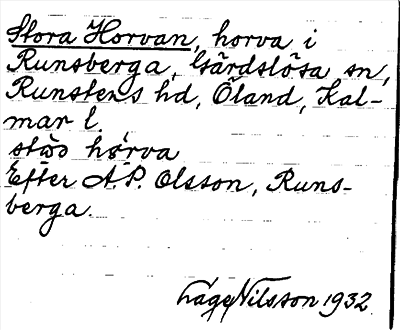 Stora Horvan, horva i
Runsberga, Gärdslösa sn,
Runstens hd, Öland, Kal-
mar l.
hørva
Efter A. P. Olsson, Runs-
berga.
Låge Nilsson 1932.